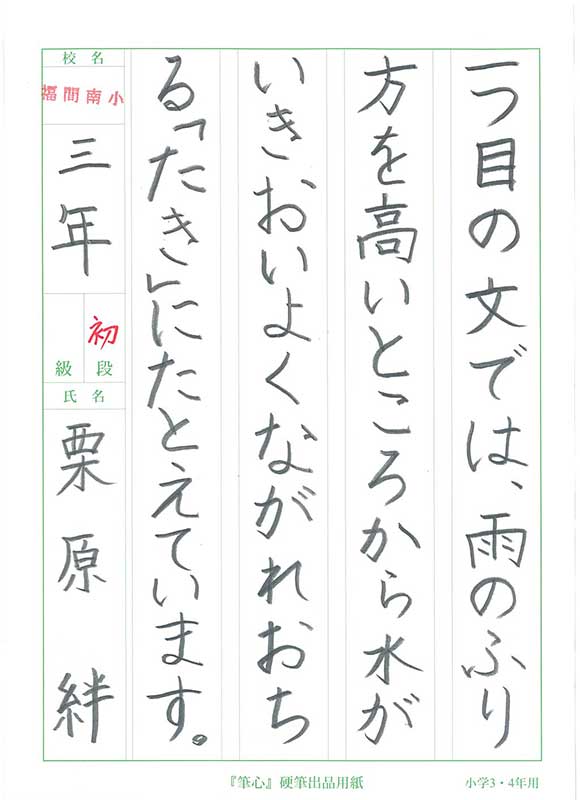 一つ目の文では、雨のふり
方を高いところから水が
いきおいよくながれおち
る「たき」にたとえています。
校名
福間南小
三年
初段
級
氏名
栗原 絆
『筆心』硬筆出品用紙
小学3・4年用